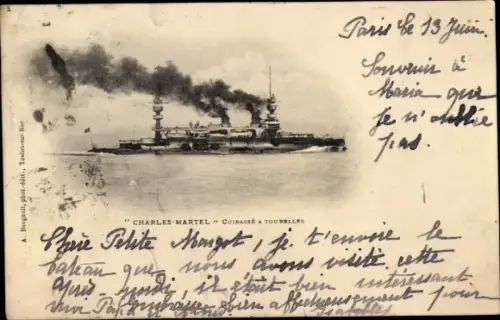 Paris le 13 Juin.
Souvenir à
Maria que
je n'oublie
pas.
A. Bougault, phot.-édit., Toulon-sur-Mer
" CHARLES-MARTEL " CUIRASSÉ A TOURELLES
Chère Petite Margot, je t'envoie le
bateau que nous avons visité cette
après-midi, il était bien interessant
Papa embrasse bien affectueusement pour
Isabelle